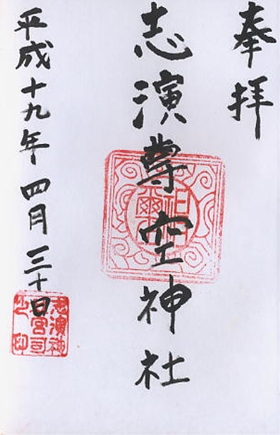 奉拝
志演尊空神社
平成十九年四月三十日
志演神
社宮司
之印